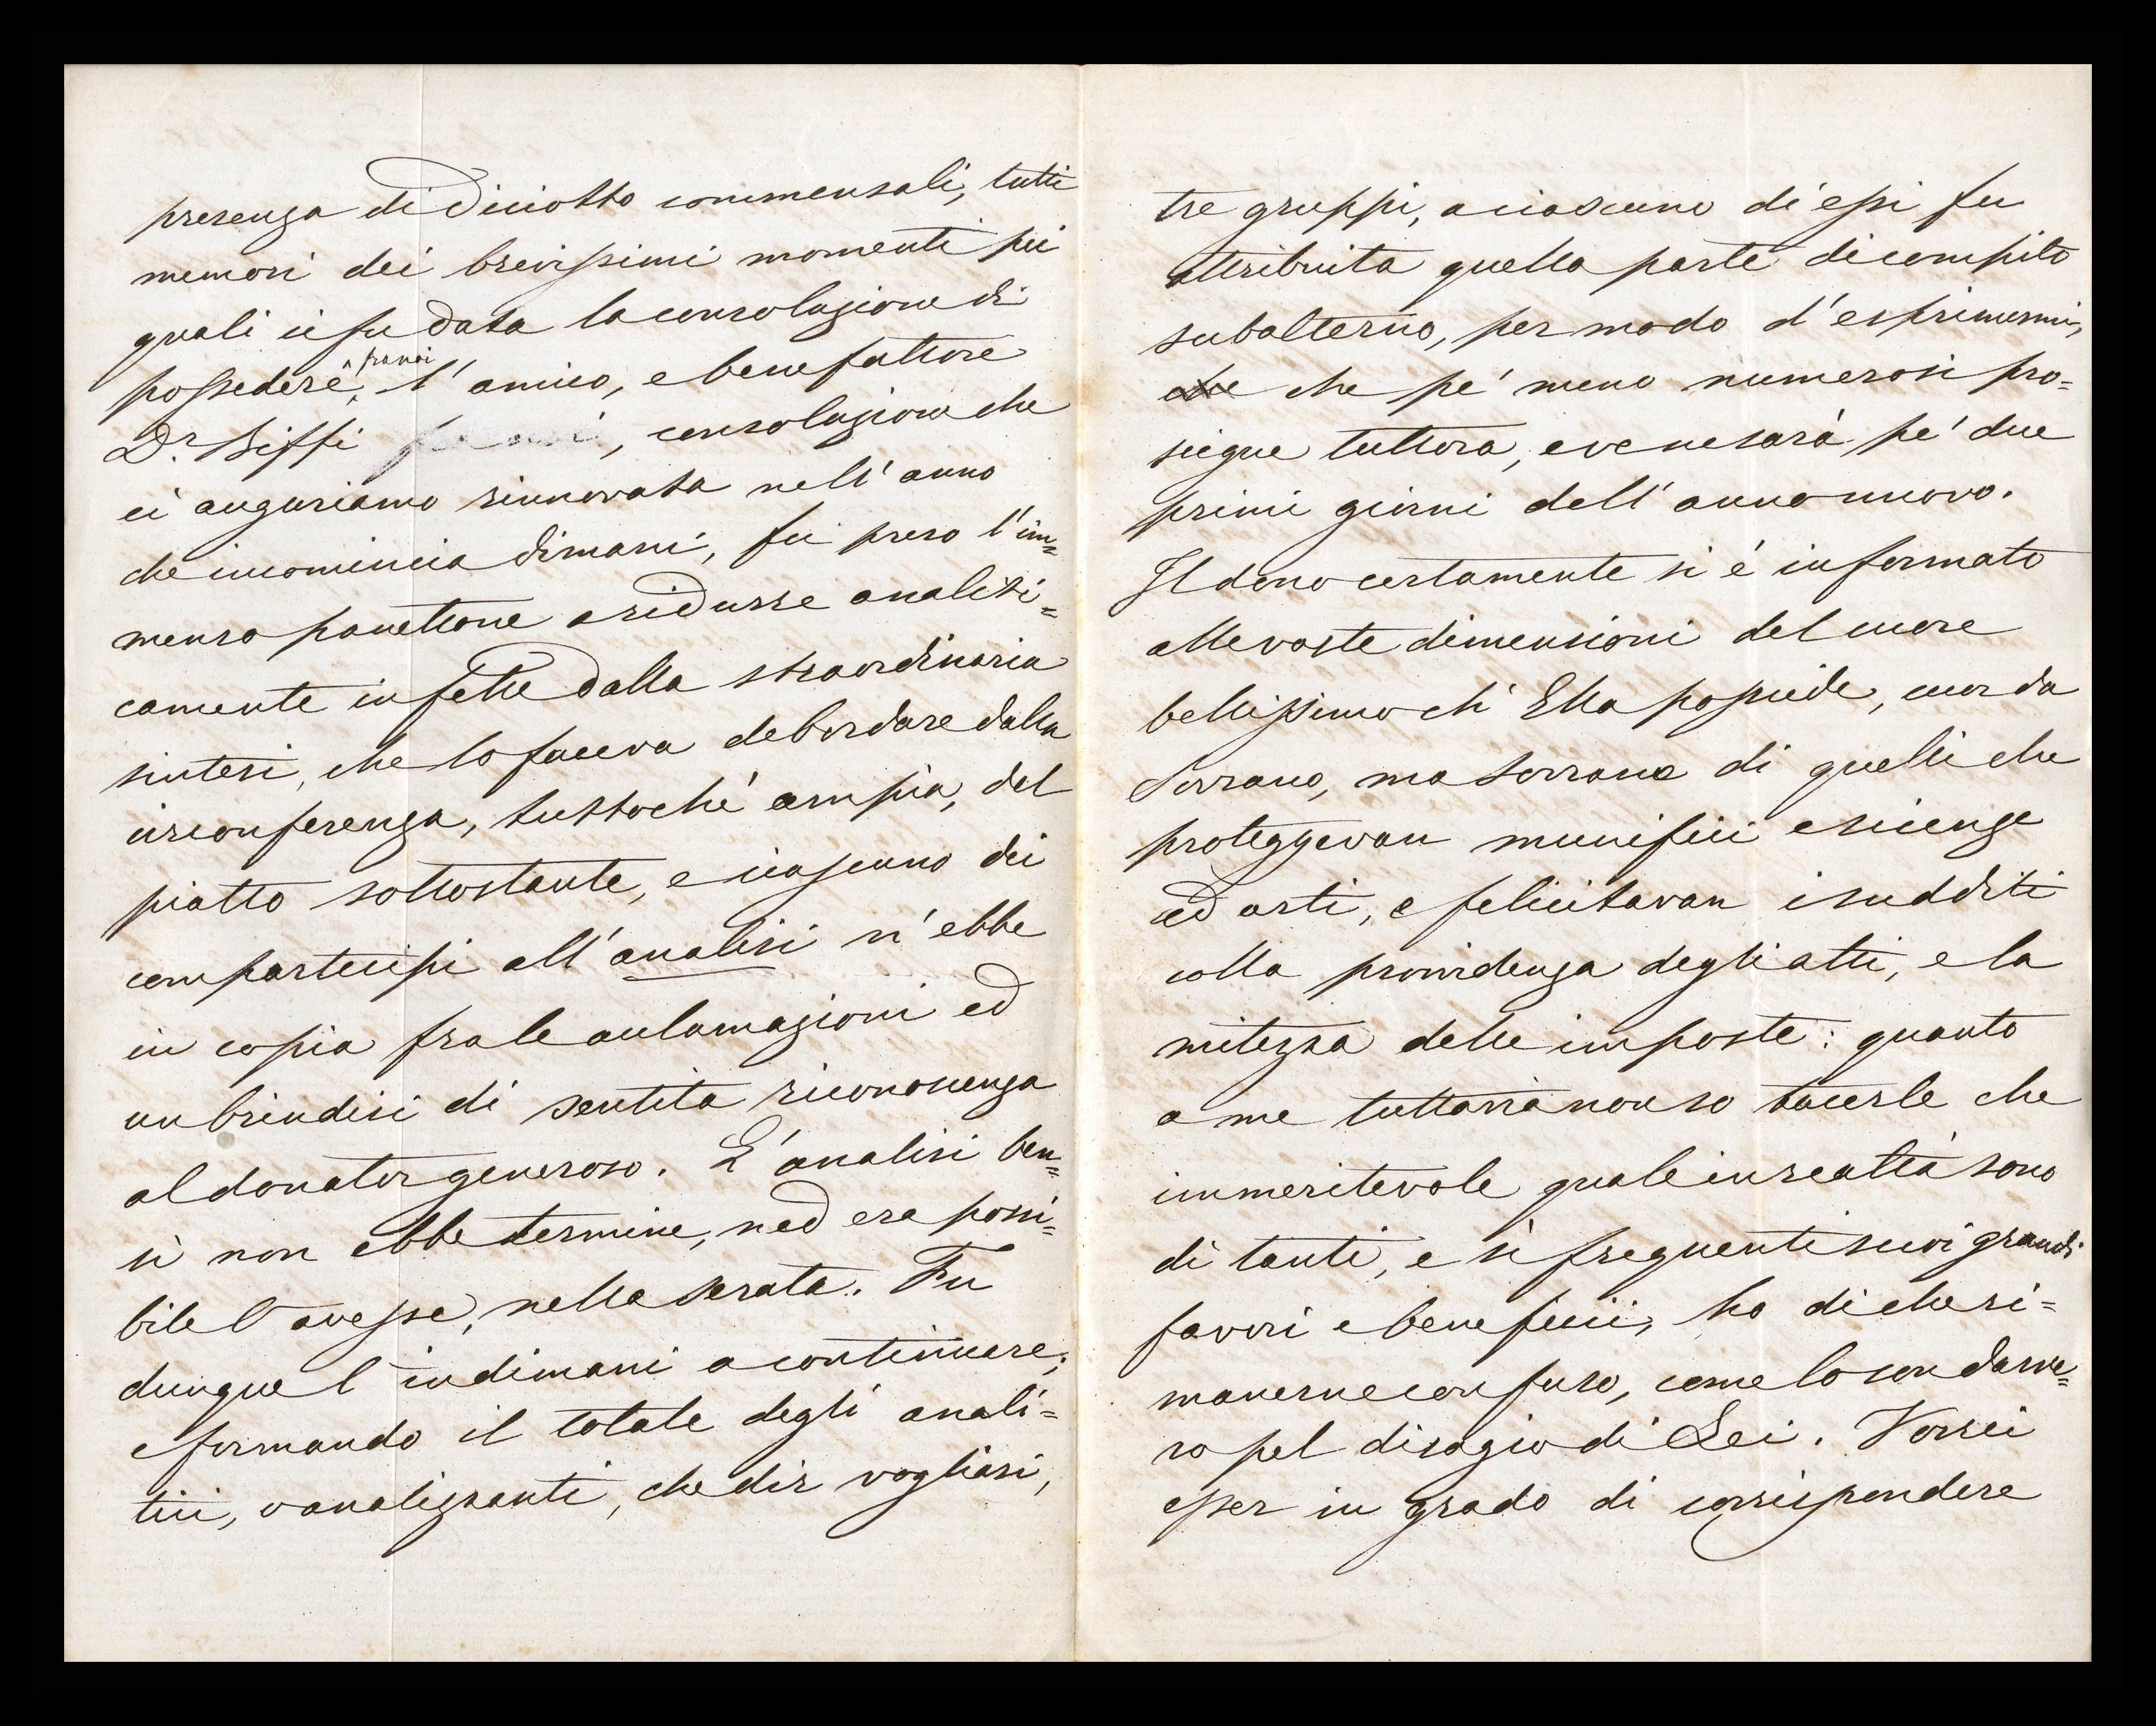 presenza di diciotto commensali, tutti
memori dei brevissimi momenti pei
quali ci fu data la consolazione di
fra noi
possedere, l'amico, e benefattore
Dr Biffi, consolazione che
ci auguriamo rinnovata nell'anno
che incomincia dimani, fu preso l'im=
menso panettone a ridurre analiti=
camente in fette dalla straordinaria
sintesi, che lo faceva debordare dalla
circonferenza, tuttochè ampia, del
piatto sottostante, e ciascuno dei
compartecipi all'analisi n'ebbe
in copia fra le aclamazioni ed
un brindisi di sentita riconoscenza
al donator generoso. L'analisi ben=
sì non ebbe termine, ned era possi=
bile l'avesse, nella serata. Fu
dunque l'indimani a continuare;
e formando il totale degli anali=
tici, o analizzanti, che dir vogliasi,
tre gruppi, a ciascuno di essi fu
attribuita quella parte di compito
subalterno, per modo d'esprimermi,
che che pe' meno numerosi pro=
siegue tuttora, e ve ne sarà pe' due
primi giorni dell'anno nuovo.
Il dono certamente si è informato
alle vaste dimensioni del cuore
bellissimo ch'Ella possiede, cuor da
Sovrano, ma Sovrano di quelli che
proteggevan munifici e scienze
ed arti, e felicitavan i sudditi
colla providenza degli atti, e la
mitezza delle imposte: quanto
a me tuttavia non so tacerle che
immeritevole quale in realtà sono
di tanti, e sì frequenti suoi grandi
favori e beneficii, ho di che ri=
manerne confuso, come lo son davve=
ro pel disagio di Lei. Vorrei
esser in grado di corrispondere